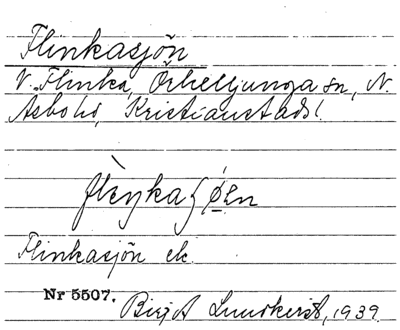 Flinkasjön
V. Flinka, Örkelljunga sn, N.
Asbo hd, Kristianstads l.
Flinkasjön ek.
Nr 5507.
Birgit Lundkvist, 1939.